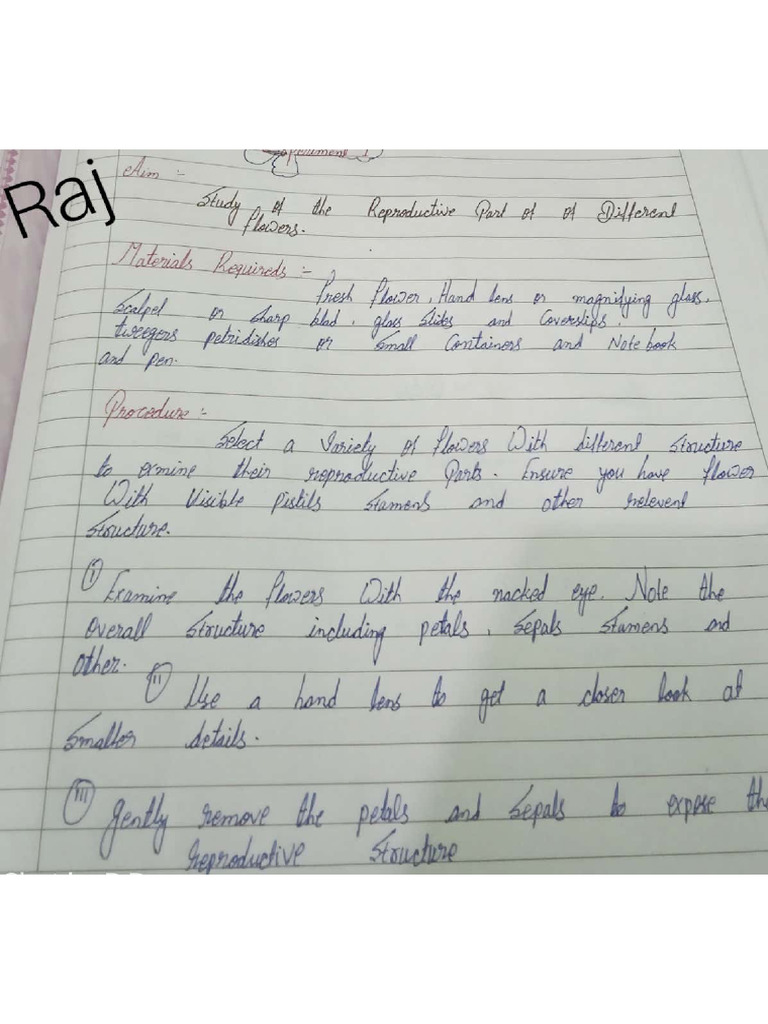 Experiment 1
Raj
Aim :-
Study of the Reproductive Part of of Different
flowers.
Materials Requireds :-
fresh flower, Hand lens or magnifying glass,
Scalpel or sharp blad, glass slides and Coverslips,
tweegers petridishes or Small Containers and Note book
and pen.
Procedure :-
Select a Variety of flowers With different Structure
to exmine their reproductive Parts. Ensure you have flower
With Visible Pistils Stamens and other relevent
Structure.
(i) Examine the flowers With the nacked eye. Note the
overall Structure including petals, Sepals Stamens and
other.
(ii) Use a hand lens to get a closer look at
Smaller details.
(iii) gently remove the petals and Sepals to expose the
reproductive Structure